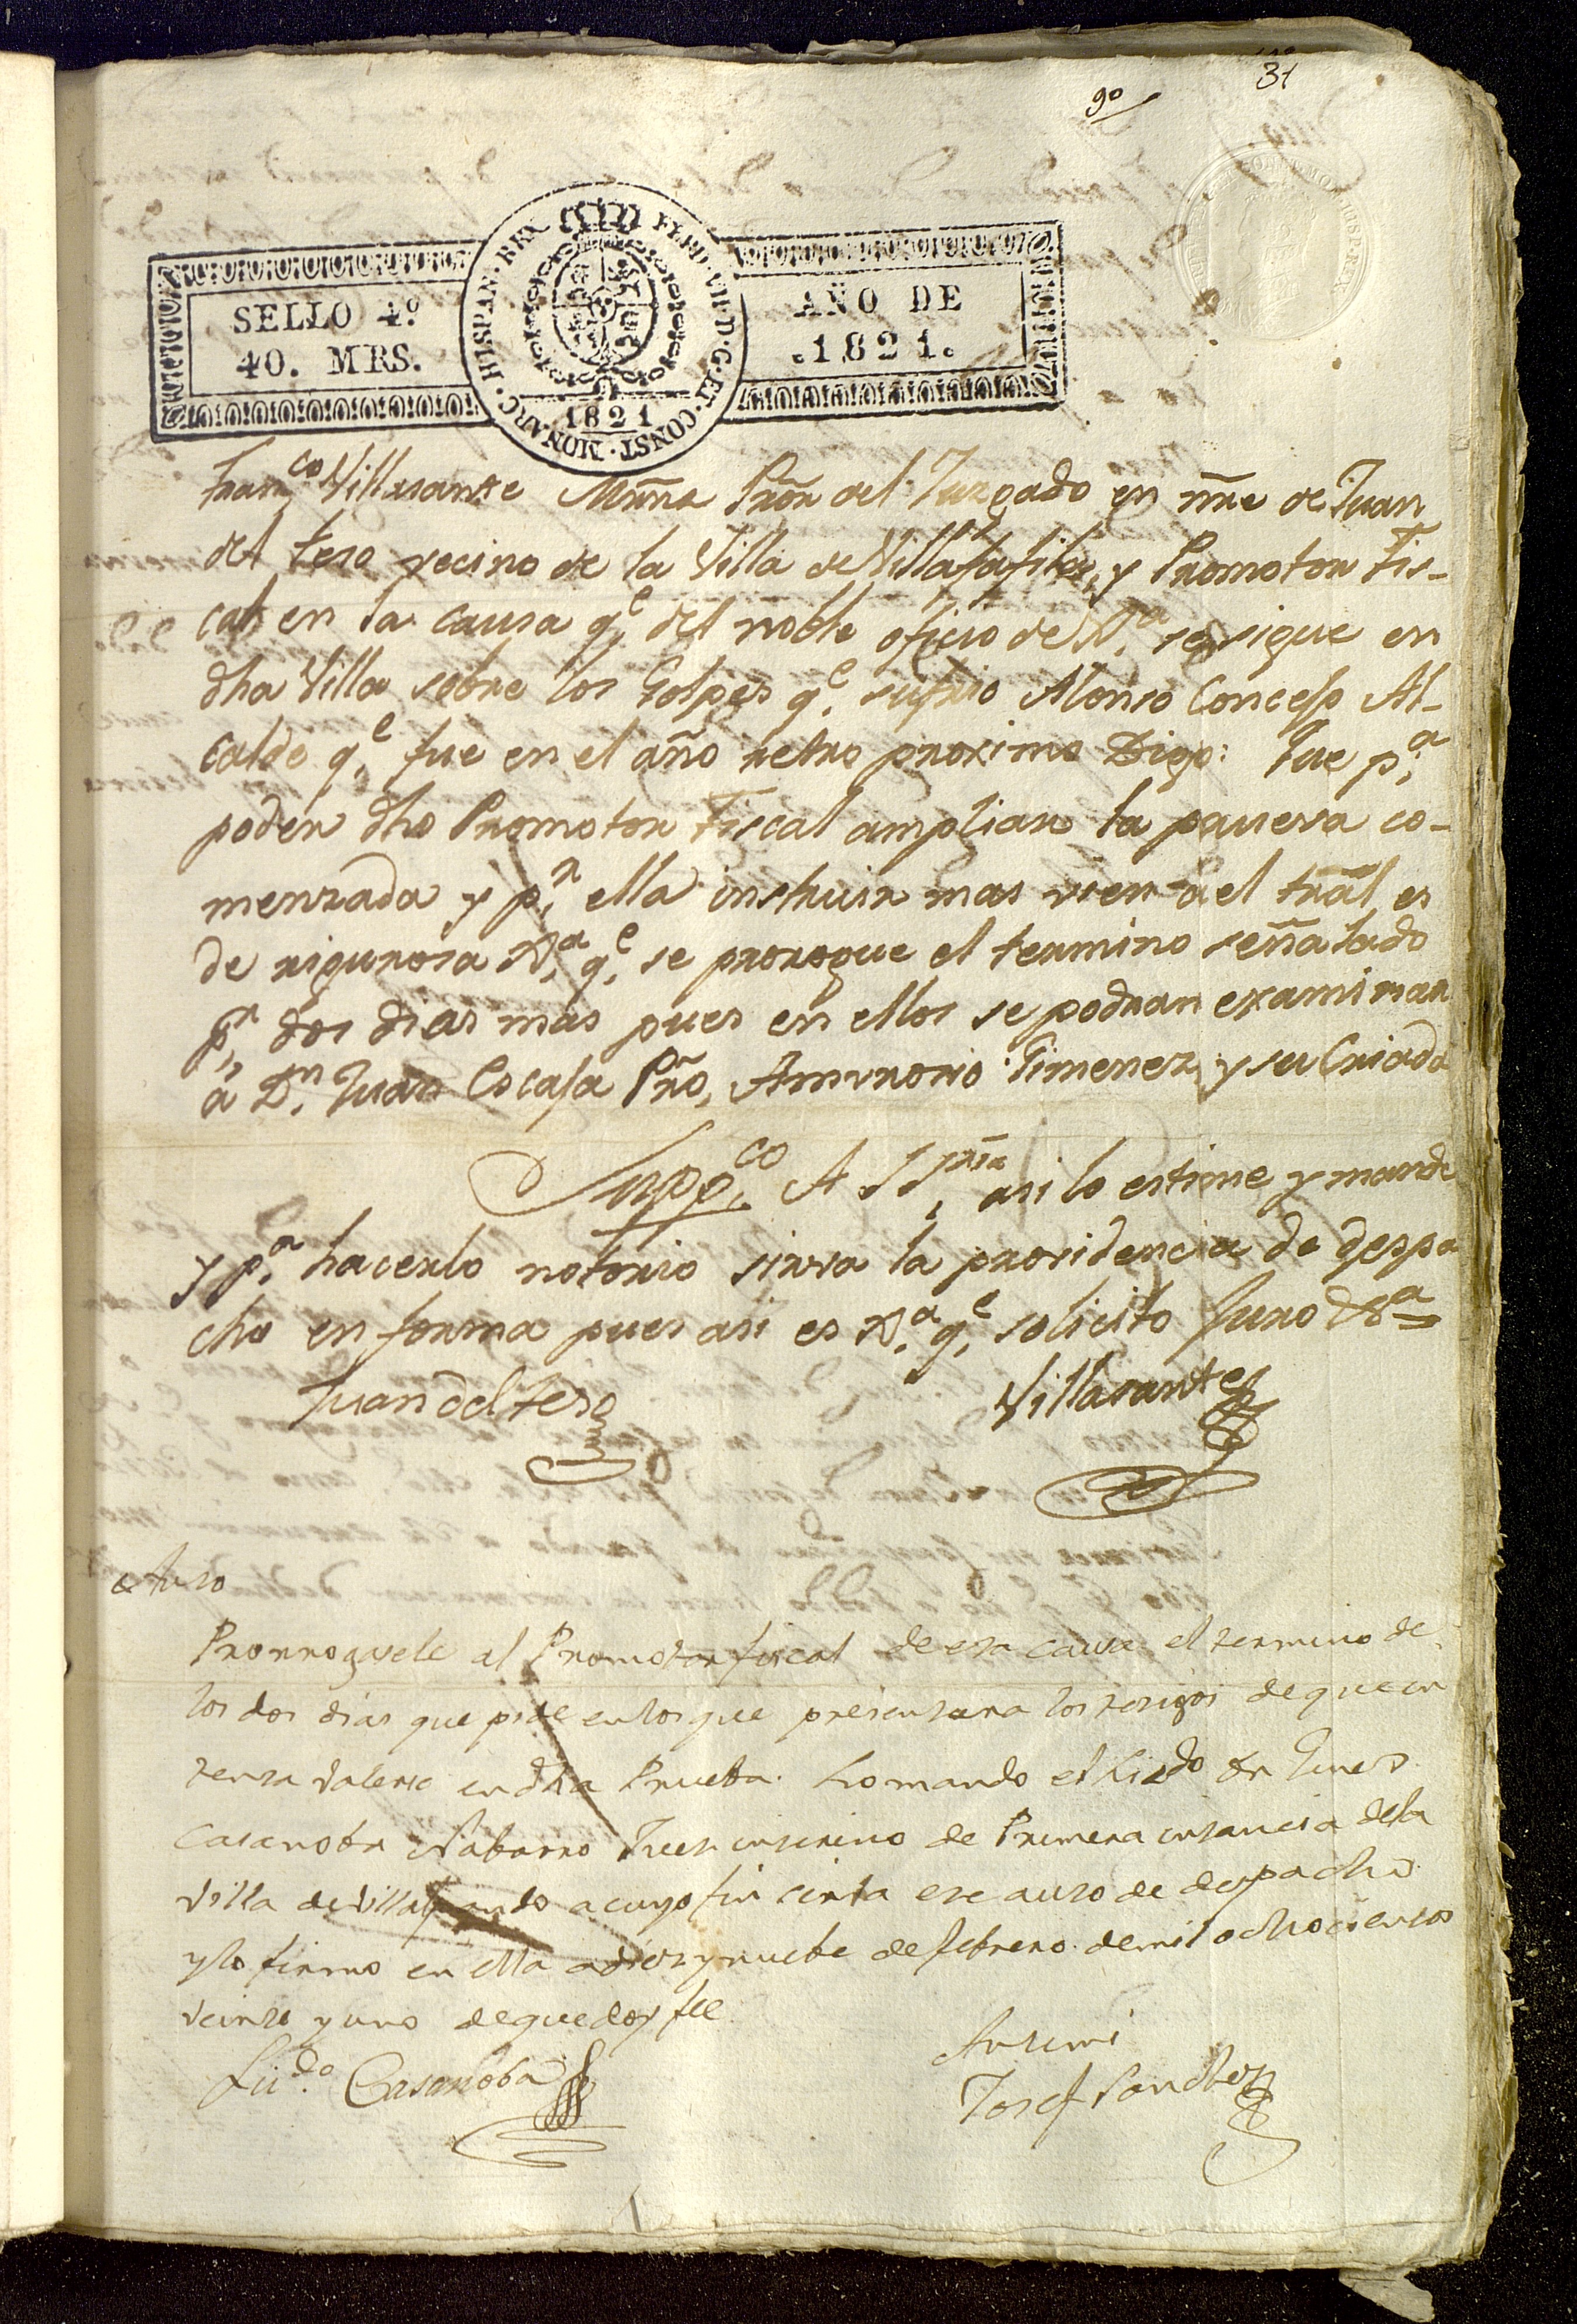 31
9º
SELLO 4º
40. MRS.
HISPAN. REX FERD. VII. D. G. ET. CONST. MONARC.
1821
AÑO DE
.1821.
Franco Villasante Procr del Juzgado en nre de Juan
del teso vecino de la Villa de Villafafila, y Promotor Fis-
cal en la causa qe. del noble oficio de Jª. se sigue en
dha Villa sobre los Golpes qe. sufrio Alonso Concejo Al-
calde qe. fue en el año retro proximo Digo: Que pª.
poder dho Promotor Fiscal ampliar la prueva co-
menzada y pr. ella instruir mas vien a el tral es
de rigurosa Jª. qe. se prorogue el termino señalado
pr. dos dias mas pues en ellos se podran examinar
a Dn. Juan Cocaſa Pro, Ambrosio Gimenez y su Criada
Suppco. A S Sria asi lo estime y mande
y pª. hacerlo notorio sirva la providencia de despa
cho en forma pues asi es Jª. qe. solicito Juro Vª=
Juan del teso
Villasante
Auto
Prorroguele al Promotor fiscal de esta causa el termino de
los dos dias que pide en los que presentara los testigos de que in
tenta valerse en dha Prueba. Lo mando el Licdo Dn Gines
Casanoba Nabarro Juez interino de Primera instancia de la
Villa de Villalpando a cuyo fin sirba ese auto de despacho
y lo firmo en ella a diez y nuebe de febrero de mil ochocientos
veinte y uno de que doy fee
Licdo. Casanoba
Antemi
Josef Sanchez